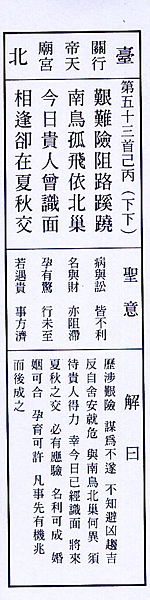 臺北
關帝廟
行天宮
第五十三首己丙(下下)
艱難險阻路蹊蹺
南鳥孤飛依北巢
今日貴人曾識面
相逢卻在夏秋交
聖意
病與訟 皆不利
名與財 亦阻滯
孕有驚 行未至
若遇貴 事方濟
解曰
歷涉艱險 謀為不遂 不知避凶趨吉
反自舍安就危 與南鳥北巢何異 須
待貴人得力 幸今日已經識面 將來
夏秋之交 必有應驗 名利可成 婚
姻可合 孕育可許 凡事先有機兆
而後成之